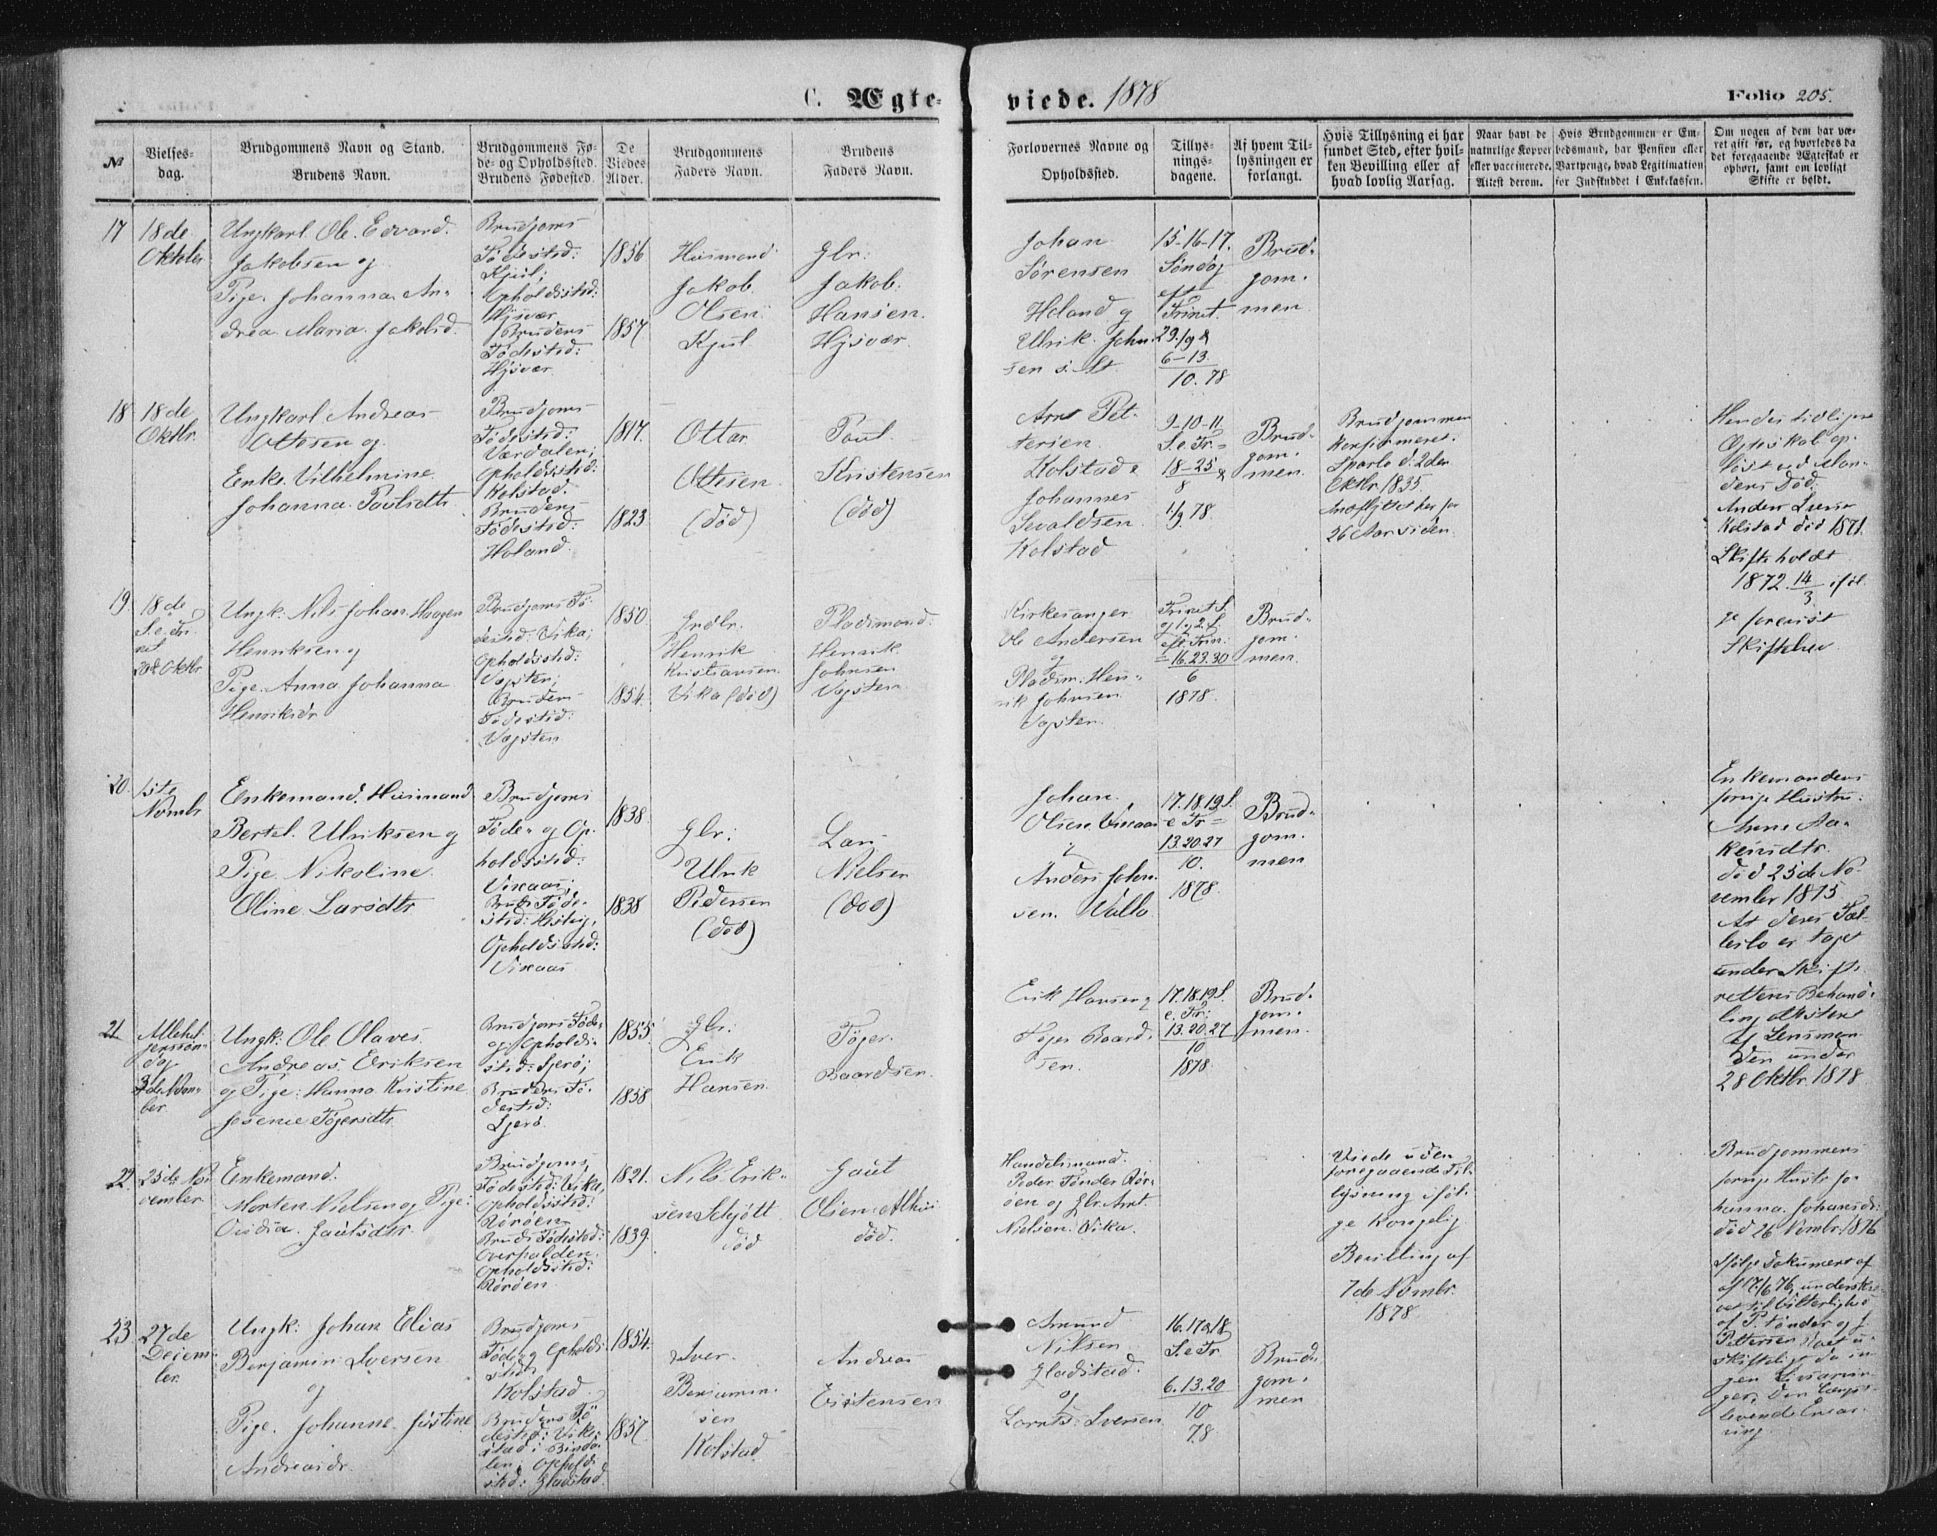 C. Ægte-
viede. 1878
Folio 205.
№
Vielses-
dag.
Brudgommens Navn og Stand.
Brudens Navn.
Brudgommens Fø-
de- og Opholdssted.
Brudens Fødested.
De
Viedes
Alder.
Brudgommens
Faders Navn.
Brudens
Faders Navn.
Forlovernes Navne og
Opholdssted.
Tillys-
nings-
dagene.
Af hvem Til-
lysningen er
forlangt.
Hvis Tillysning ei har
fundet Sted, efter hvil-
ken Bevilling eller af
hvad lovlig Aarsag.
Naar havt de
naturlige Kopper
eller vaccinerede.
Attest derom.
Hvis Brudgommen er Em-
bedsmand, har Pension eller
Vartpenge, hvad Legitimation
for Indskuddet i Enkekassen.
Om nogen af dem har væ-
ret gift før, og hvorledes da
det foregaaende Ægteskab er
ophørt, samt om lovligt
Skifte er holdt.
17
18de
Oktober
Ungkarl Ole Edvard
Jakobsen og
Pige Johanna An-
drea Maria Jakobsd.
Brudgoms
Fødested:
Kjul;
Opholdssted:
Hjsvær
Brudens
Fødested:
Hjsvær
1856
1857
Husmand
Jakob
Olsen
Kjul
Gbr:
Jakob
Hansen
Hjsvær
Johan
Sørensen
Heland og
Ulrik John-
sen
15-16-17.
Søndag
eft.
Trinit.
29/9 &
6-13.
10. 78
Brud-
gom-
men
18
18de
Oktbr.
Ungkarl Andreas
Ottesen og
Enke Vilhelmine
Johanna Paulsdtr
Brudgoms
Fødested:
Værdalen;
Opholdssted:
Kolstad.
Brudens
Fødested:
Holand.
1817.
1823
Ottar
Ottesen
(død)
Paul
Kristensen
(død)
Arnt Pet-
tersen
Kolstad &
Johannes
Sivaldsen
Kolstad
9-10-11
S. e. Tr. =
18-25 &
8
1/9 78.
Brud-
gom-
men
Brudgommen
konfirmeret
Sparbo d. 2den
Oktbr. 1835
Indflyttet her for
26 Aar siden.
Hendes tidligere
Ægteskab op-
løst ved Man-
dens Død.
Anders Iversen
Kolstad død 1871.
Skifte holdt
1872 14/3 iføl-
ge forevist
Skiftebrev
19
18de
S. e. Tri-
nit
20de Oktbr
Ungk: Nils Johan Haagen
Henriksen og
Pige Anna Johanna
Henriksdr
Brudgoms Fø-
dested: Vika;
Opholdssted:
Vagsten;
Brudens
Fødested:
Vagsten
1850.
1854.
Indbr.
Henrik
Kristiansen
Vika (død)
Pladsmand:
Henrik
Johnsen
Vagsten
Kirkesanger
Ole Andersen
og
Pladsm: Hen-
rik Johnsen
Vagsten.
Trinit S.
og 1 og 2. S.
eft. Trin:
= 16. 23. 30
6
1878
Brud-
gom-
men
20.
1ste
Novmbr
Enkemand, Husmand
Bertel Ulriksen og
Pige Nikoline
Oline Larsdtr
Brudgoms
Føde- og Op-
holdssted:
Vixaas;
Bruds Føde-
sted:
Opholdssted:
Vixaas
1838.
1838
Gbr:
Ulrik
Pedersen
(død)
Lars
Nielsen
(død)
Johan
Olsen Vixaas
&
Anders John-
sen. Valla
17. 18. 19 S.
e. Tr =
13. 20. 27
10.
1878.
Brud-
gom-
men
Enkemandens
forrige Hustru:
Anne Aa-
kersdtr.
død 25de No-
vember 1875
At deres Fæl-
lesbo er taget
under Skif-
terettens Behand-
ling
af Lensman-
den under
28 Oktbr. 1878
21
Allehel-
genssøn-
dag
3de Novm-
ber.
Ungk: Ole Olaves
Andreas Eriksen
og Pige: Hanna Kristine
Josenie Tøgersdtr
Brudgoms Føde-
og Opholds-
sted: Lerø;
Brudens Fø-
dested:
Lerø.
1855
1858
Gbr.
Erik
Hansen
Tøger
Baardsen
Erik Hansen &
Tøger Baard-
sen.
17. 18. 19 S.
e. Tr:
13. 20. 27
10
1878
Brud-
gom-
men.
22.
25de No-
vember.
Enkemand.
Morten Nielsen og Pige:
Ovidia Gautsdtr.
Brudgoms
Fødested: Vika,
Opholdssted:
Rørøen
Bruds Fødested:
Overhalden.
Opholdssted:
Rørøen.
1821.
1839
Nils Erik-
sen Schjött
død
Gaut
Olsen
død.
Handelsmand.
Peder Tønder Rør-
øen og Gbr. Arnt
Nielsen Vika.
Viede uden
foregaaende Til-
lysning iføl-
ge Kongelig
Bevilling af
7de Novmbr
1878
Brudgommens
forrige Hustr Jo-
hanna Johansdr.
død 26 Novmbr. 1876
Ifølge Dokument af
17/6 76, underskre-
vet til Vitterlighed
af P. Tønder og J.
Pettersen
skiftelige da in-
gen Livsarvin-
ger. Den længst-
levende Enear-
ving
23
27de
Decem-
ber.
Ungk: Johan Elias
Benjamin Iversen
og
Pige Johanne Justine
Andreasdr.
Brudgoms
Føde og Opholds-
sted
Kolstad.
Brudens Fø-
dested: Vik-
stad i Bindal-
len. Opholds-
sted: Gladstad
1854.
1857.
Iver
Benjamin-
sen
Kolstad
Andreas
Eistensen
Amund
Nilsen
Gladstad.
og
Lornts Iversen
16. 17 & 18
S. e. Tr
6. 13. 20
10
78
Brud-
gom-
men